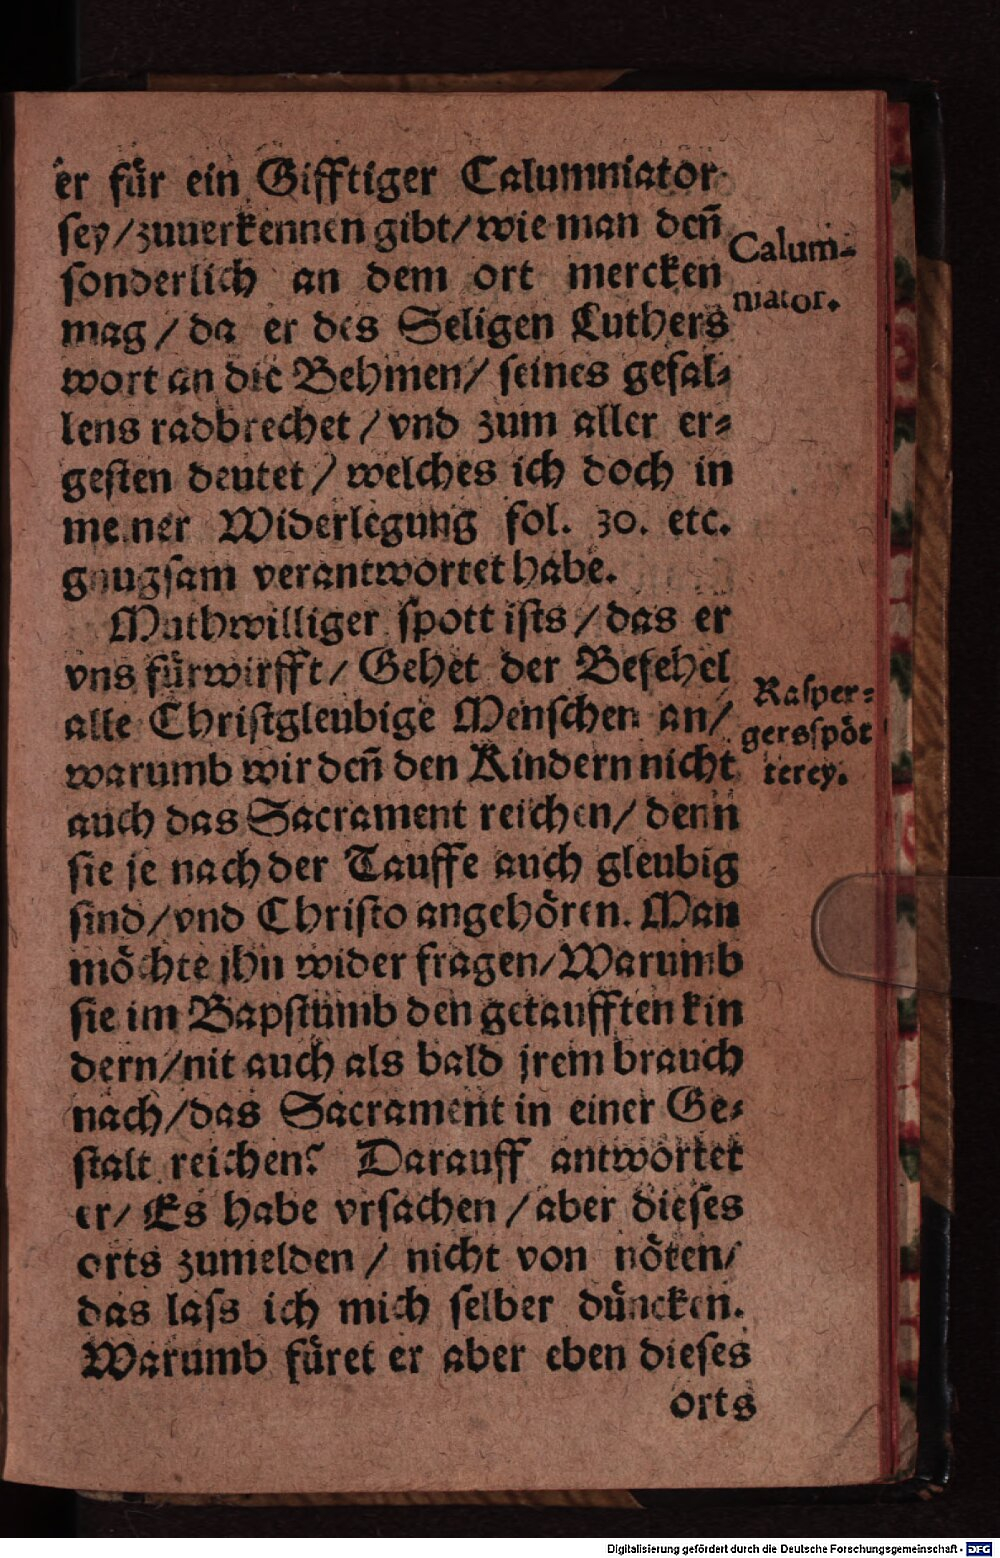 er für ein Gifftiger Calumniator
sey/zuuerkennen gibt/wie man deñ
sonderlich an dem ort mercken
mag/da er des Seligen Luthers
wort an die Behmen/seines gefal⸗
lens radbrechet/vnd zum aller er⸗
gesten deutet/welches ich doch in
meiner Widerlegung fol. 30. etc.
gnugsam verantwortet habe.
Calum⸗
niator.
Muthwilliger spott ists/das er
vns fürwirfft/Gehet der Befehel
alle Christgleubige Menschen an/
warumb wir deñ den Kindern nicht
auch das Sacrament reichen/denn
sie je nach der Tauffe auch gleubig
sind/vnd Christo angehören. Man
möchte jhn wider fragen/Warumb
sie im Bapstumb den getaufften kin
dern/nit auch als bald jrem brauch
nach/das Sacrament in einer Ge⸗
stalt reichen? Darauff antwortet
er/Es habe vrsachen/aber dieses
orts zumelden/nicht von nöten/
das lass ich mich selber düncken.
Warumb füret er aber eben dieses
orts
Rasper⸗
gersspöt
terey.
Digitalisierung gefördert durch die Deutsche Forschungsgemeinschaft - DFG